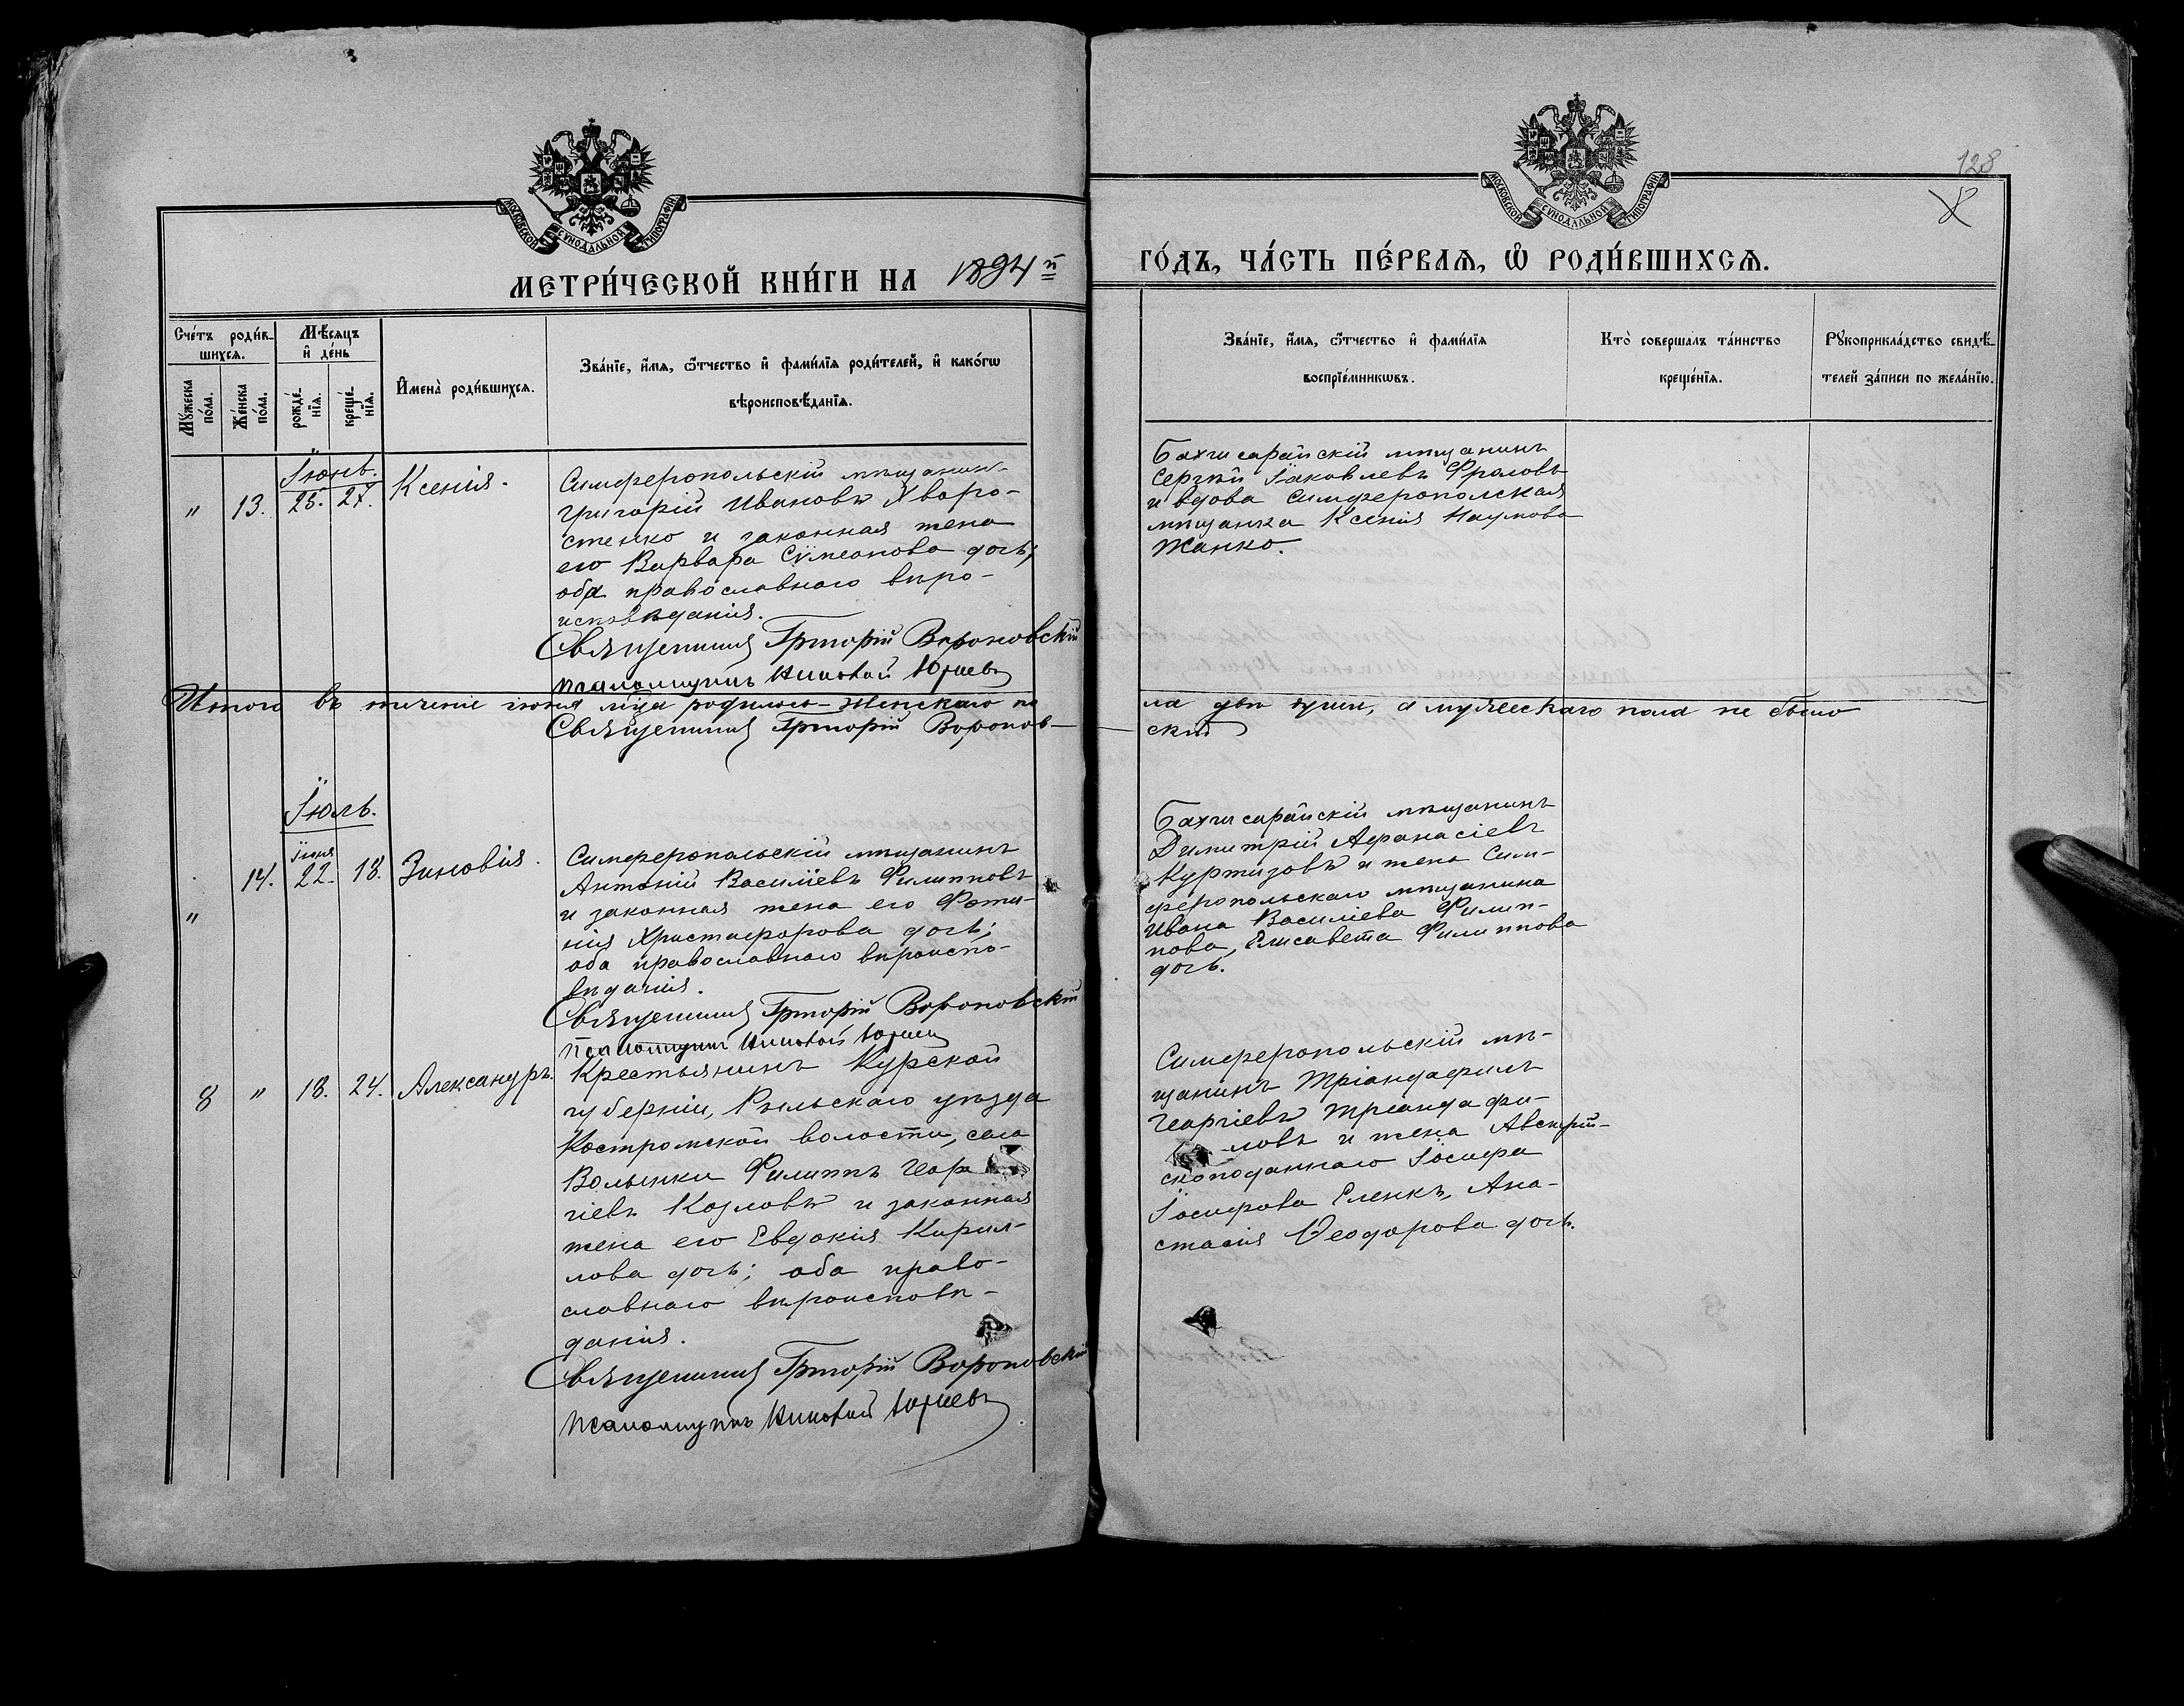 128
МОСКОВСКОЙ СѴНОДАЛЬНОЙ ТИПОГРАФІИ
МОСКОВСКОЙ СѴНОДАЛЬНОЙ ТИПОГРАФІИ
МЕТРИ́ЧЕСКОЙ КНИ́ГИ НА 1894й
ГО́ДЪ, ЧА́СТЬ ПЕ́РВАѦ, Ѡ҆ РОДИ́ВШИХСѦ.
Сче́тъ роди́в-
шихсѧ.
Мꙋ́жеска по́ла.
Же́нска по́ла.
Мѣ́сѧцъ
и҆ де́нь
рожде́-
нїѧ.
креще́-
нїѧ.
И҆мена̀ роди́вшихсѧ.
Зва́нїе, и҆́мѧ, ѻ҆́тчество и҆ фами́лїѧ роди́телей, и҆ како́гѡ
вѣроисповѣ́данїѧ.
Зва́нїе, и҆́мѧ, ѻ҆́тчество и҆ фами́лїѧ
воспрїе́мникѡвъ.
Кто̀ соверша́лъ та́инство
креще́нїѧ.
Рꙋкоприкла́дство свидѣ́-
телей за́писи по жела́нїю.
Іюнь.
" 13. 25. 27. Ксенія.
Симферопольскій мѣщанинъ
Григорій Ивановъ Хворо-
стенко и законная жена
его Варвара Сѵмеонова дочь;
оба православнаго вѣро-
исповѣданія.
Священникъ Григорій Вороновскій
Псаломщикъ Николай Юрьевъ
Бахчисарайскій мѣщанинъ
Сергѣй Іаковлевъ Фроловъ
и вдова Симферополская
мѣщанка Ксенія Наумова
Жанко.
Итого въ теченіе іюня м-ца родилось женскаго по
ла двѣ души, а мужескаго пола не было
Священникъ Григорій Воронов-
скій
Іюль.
" 14. Іюня 22. 18. Зиновія.
Симферопольскій мѣщанинъ
Антоній Василіевъ Филипповъ
и законная жена его Фоти-
нія Христофорова дочь;
оба православнаго вѣроиспо-
вѣданія.
Священникъ Григорій Вороновскій
Псаломщикъ Николай Юрьевъ
Бахчисарайскій мѣщанинъ
Димитрій Афанасіевъ
Куртизовъ и жена Сим-
феропольскаго мѣщанина
Ивана Василіева Филип-
пова, Елисавета Филиппова
дочь.
8 " 18. 24. Александръ.
Крестьянинъ Курской
губерніи, Рыльскаго уѣзда
Костромской волости, села
Волынки Филиппъ Геор
гіевъ Козловъ и законная
жена его Евдокія Кирил-
лова дочь; оба право-
славнаго вѣроисповѣ-
данія.
Священникъ Григорій Вороновскій
Псаломщикъ Николай Юрьевъ
Симферопольскій мѣ-
щанинъ Тріандафилъ
Георгіевъ Тріандафи-
ловъ и жена Австрій-
скоподаннаго Іосифа
Іосифова Еленкъ, Ана-
стасія Ѳеодорова дочь.